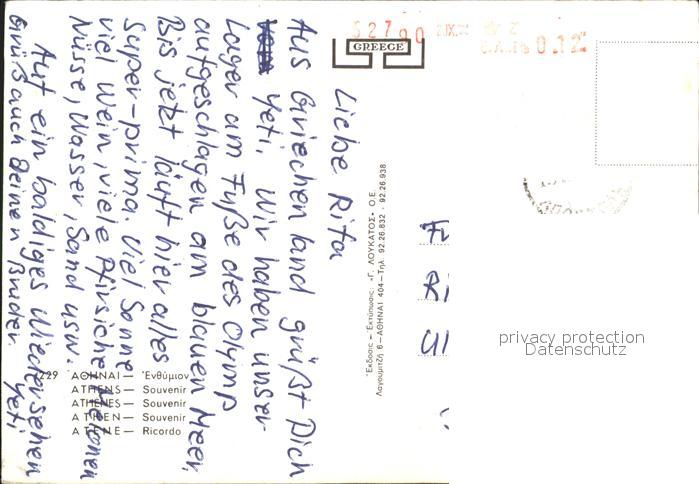 Liebe Rita
Aus Griechenland grüßt Dich
Yeti. Wir haben unser
Lager am Fuße des Olymp
aufgeschlagen am blauen Meer.
Bis jetzt läuft hier alles
super-prima. Viel Sonne
viel Wein, viele Pfirsiche Melonen
Nüsse, Wasser, Sand usw.
Auf ein baldiges Wiedersehen
Grüß auch Deinen Bruder Yeti
GREECE
52790
0.12
229 ΑΘΗΝΑΙ — Ἐνθύμιον
ATHENS — Souvenir
ATHENES — Souvenir
ATHEN — Souvenir
ATENE — Ricordo
Ἔκδοσις – Ἐκτύπωσις: «Γ. ΛΟΥΚΑΤΟΣ» Ο.Ε.
6 – ΑΘΗΝΑΙ 404 – Τηλ. 92.26.832 - 92.26.938
privacy protection
Datenschutz